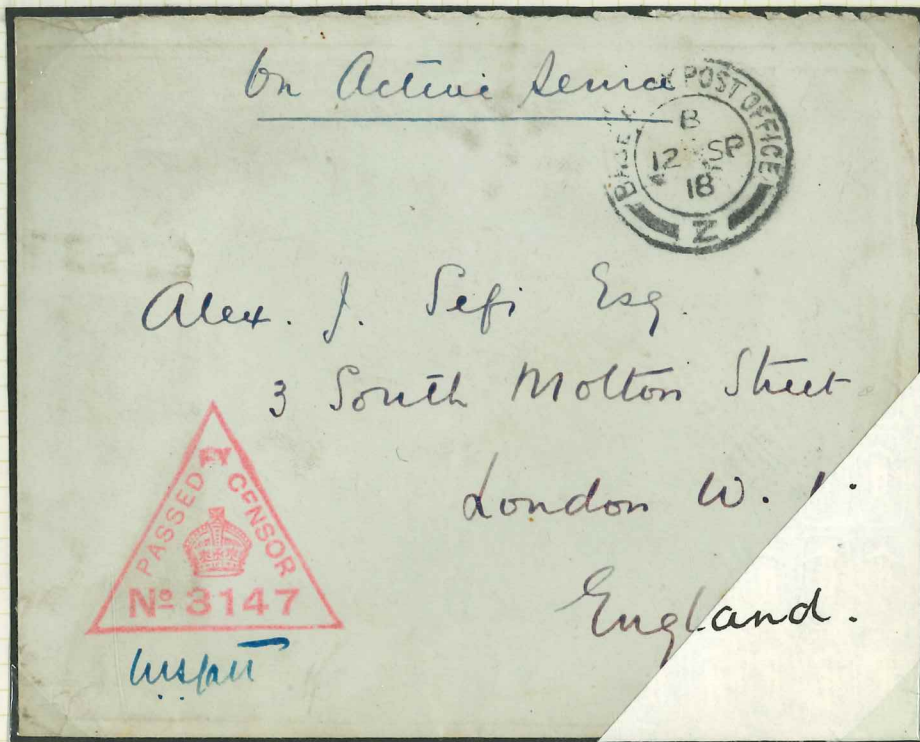 On Active Service
BASE ARMY POST OFFICE
B
12 SP
18
Z
Alex. J. Sefi Esq.
3 South Molton Street
London W. 1.
England.
PASSED BY CENSOR
No 3147